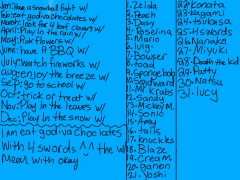 Jan: Have a snowball fight w/
Feb: eat godiva chocolates w/
March: look for 4 leaf clovers w/
April: Play in the rain w/
May: Pick flowers w/
June: have a BBQ w/
July: Watch fireworks w/
Aug: enjoy the breeze w/
Sep: go to school w/
Oct: trick of treat w/
Nov: Play in the leaves w/
Dec: Play in the snow w/
I am eat godiva chocolates
With 4 swords ^^ the w/
Mear with okay
1. Zelda
2. Peach
3. Daisy
4. Roselina
5. Mario
6. Luigi
7. Bowser
8. toad
9. Spongebob
10. Squidward
11. Mr. Krabs
12. Sandy
13. Mickey M.
14. Sonic
15. Amy
16. tails
17. Knuckles
18. Blaze
19. Cream
20. ganon
21. Yoshi
22. Konata
23. Kagami
24. tsukasa
25. 4 swords
26. Kanaka
27. Miyuki
28. Death the kid
29. Patty
30. Natsu
31. lucy